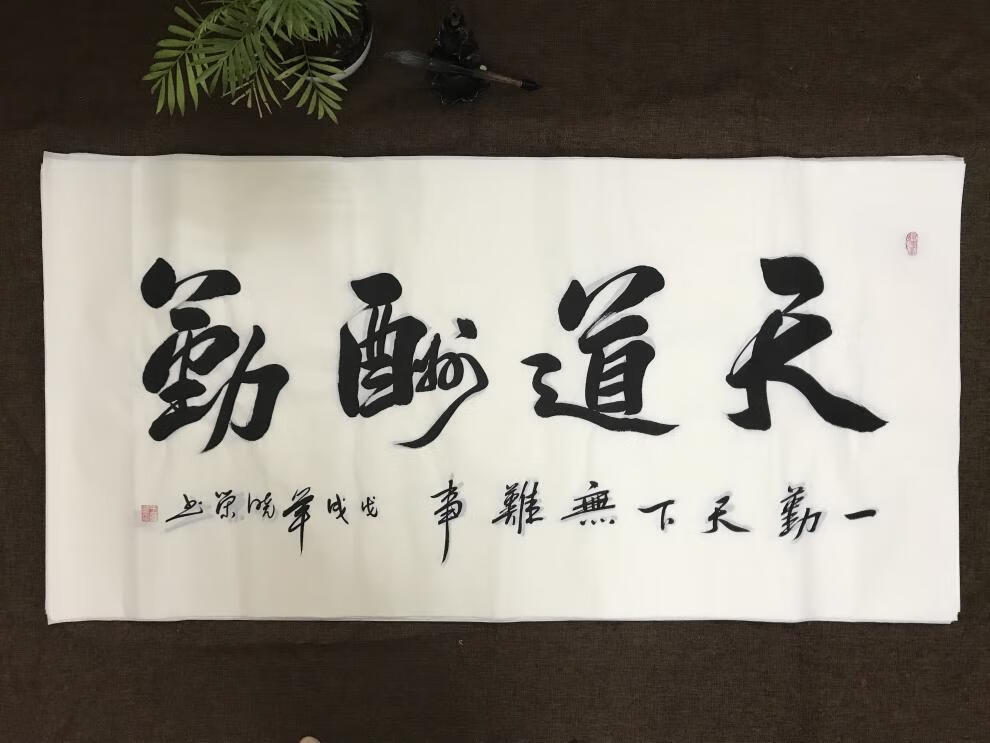 天道酬勤
一勤天下無難事 戊戌 晓荣书